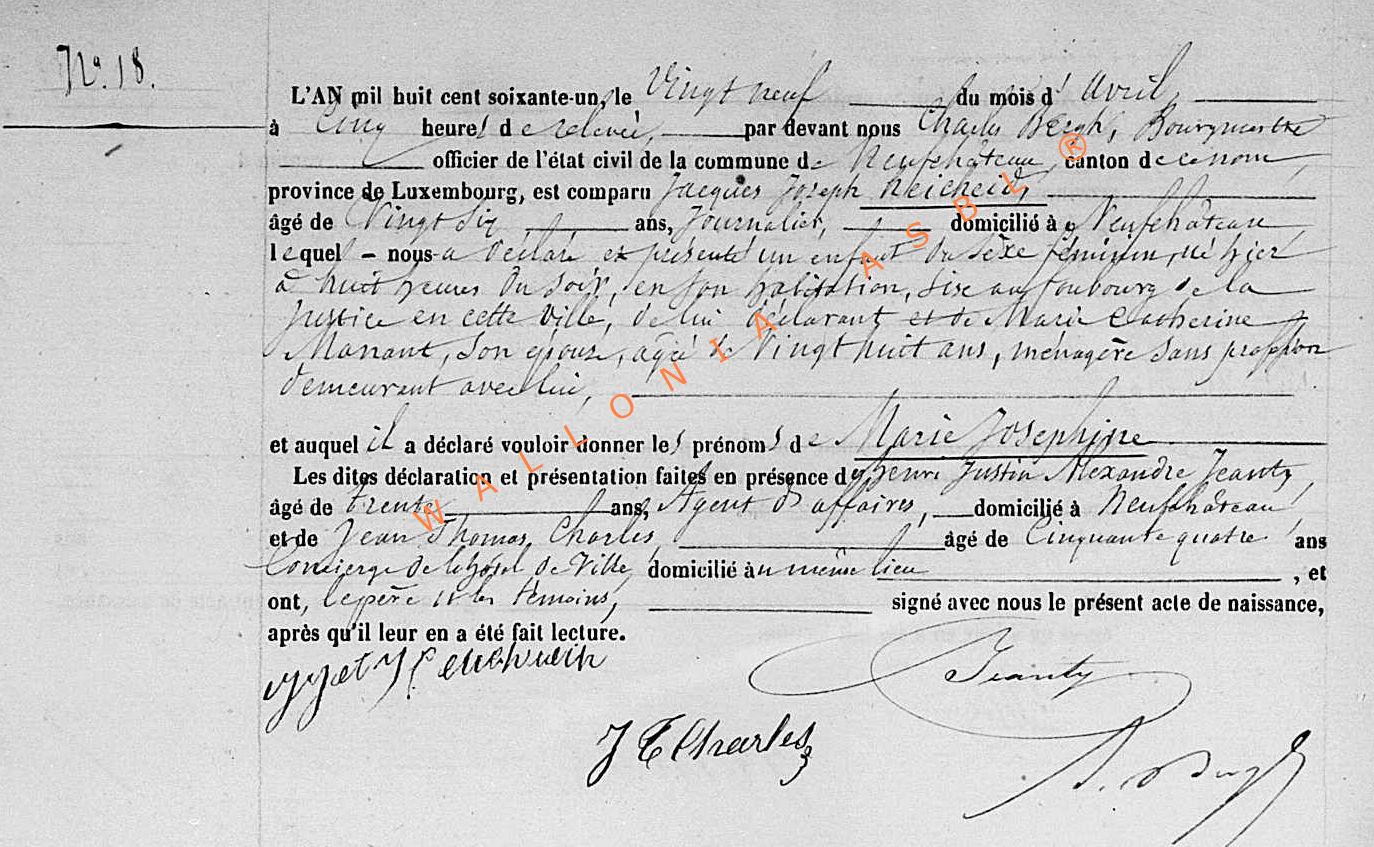 No. 18.
L'AN mil huit cent soixante-un, le Vingt neuf du mois d' Avril,
à Cinq heures de relevée, par devant nous Charles Bergh, Bourgmestre
officier de l'état civil de la commune de Neufchâteau, canton de ce nom,
province de Luxembourg, est comparu Jacques Joseph Reicheid,
âgé de Vingt six ans, Journalier, domicilié à Neufchâteau,
lequel nous a déclaré et présenté un enfant du sèxe féminin, né hier
à huit heures du soir, en son habitation, sise au foubourg de la
Justice en cette Ville, de lui déclarant et de Marie Catherine
Manant, son épouse, agée de Vingt huit ans, ménagère sans profession
demeurant avec lui,
et auquel il a déclaré vouloir donner les prénoms de Marie Josephine
Les dites déclaration et présentation faites en présence de henri Justin Alexandre Jeanty,
âgé de trente ans, Agent d'affaires, domicilié à Neufchâteau,
et de Jean Thomas Charles, âgé de Cinquante quatre ans
Concierge de l'hôtel de Ville, domicilié au même lieu, et
ont, le père et les témoins, signé avec nous le présent acte de naissance,
après qu'il leur en a été fait lecture.
Jeanty
J T Charles
WALLONIA ASBL ®